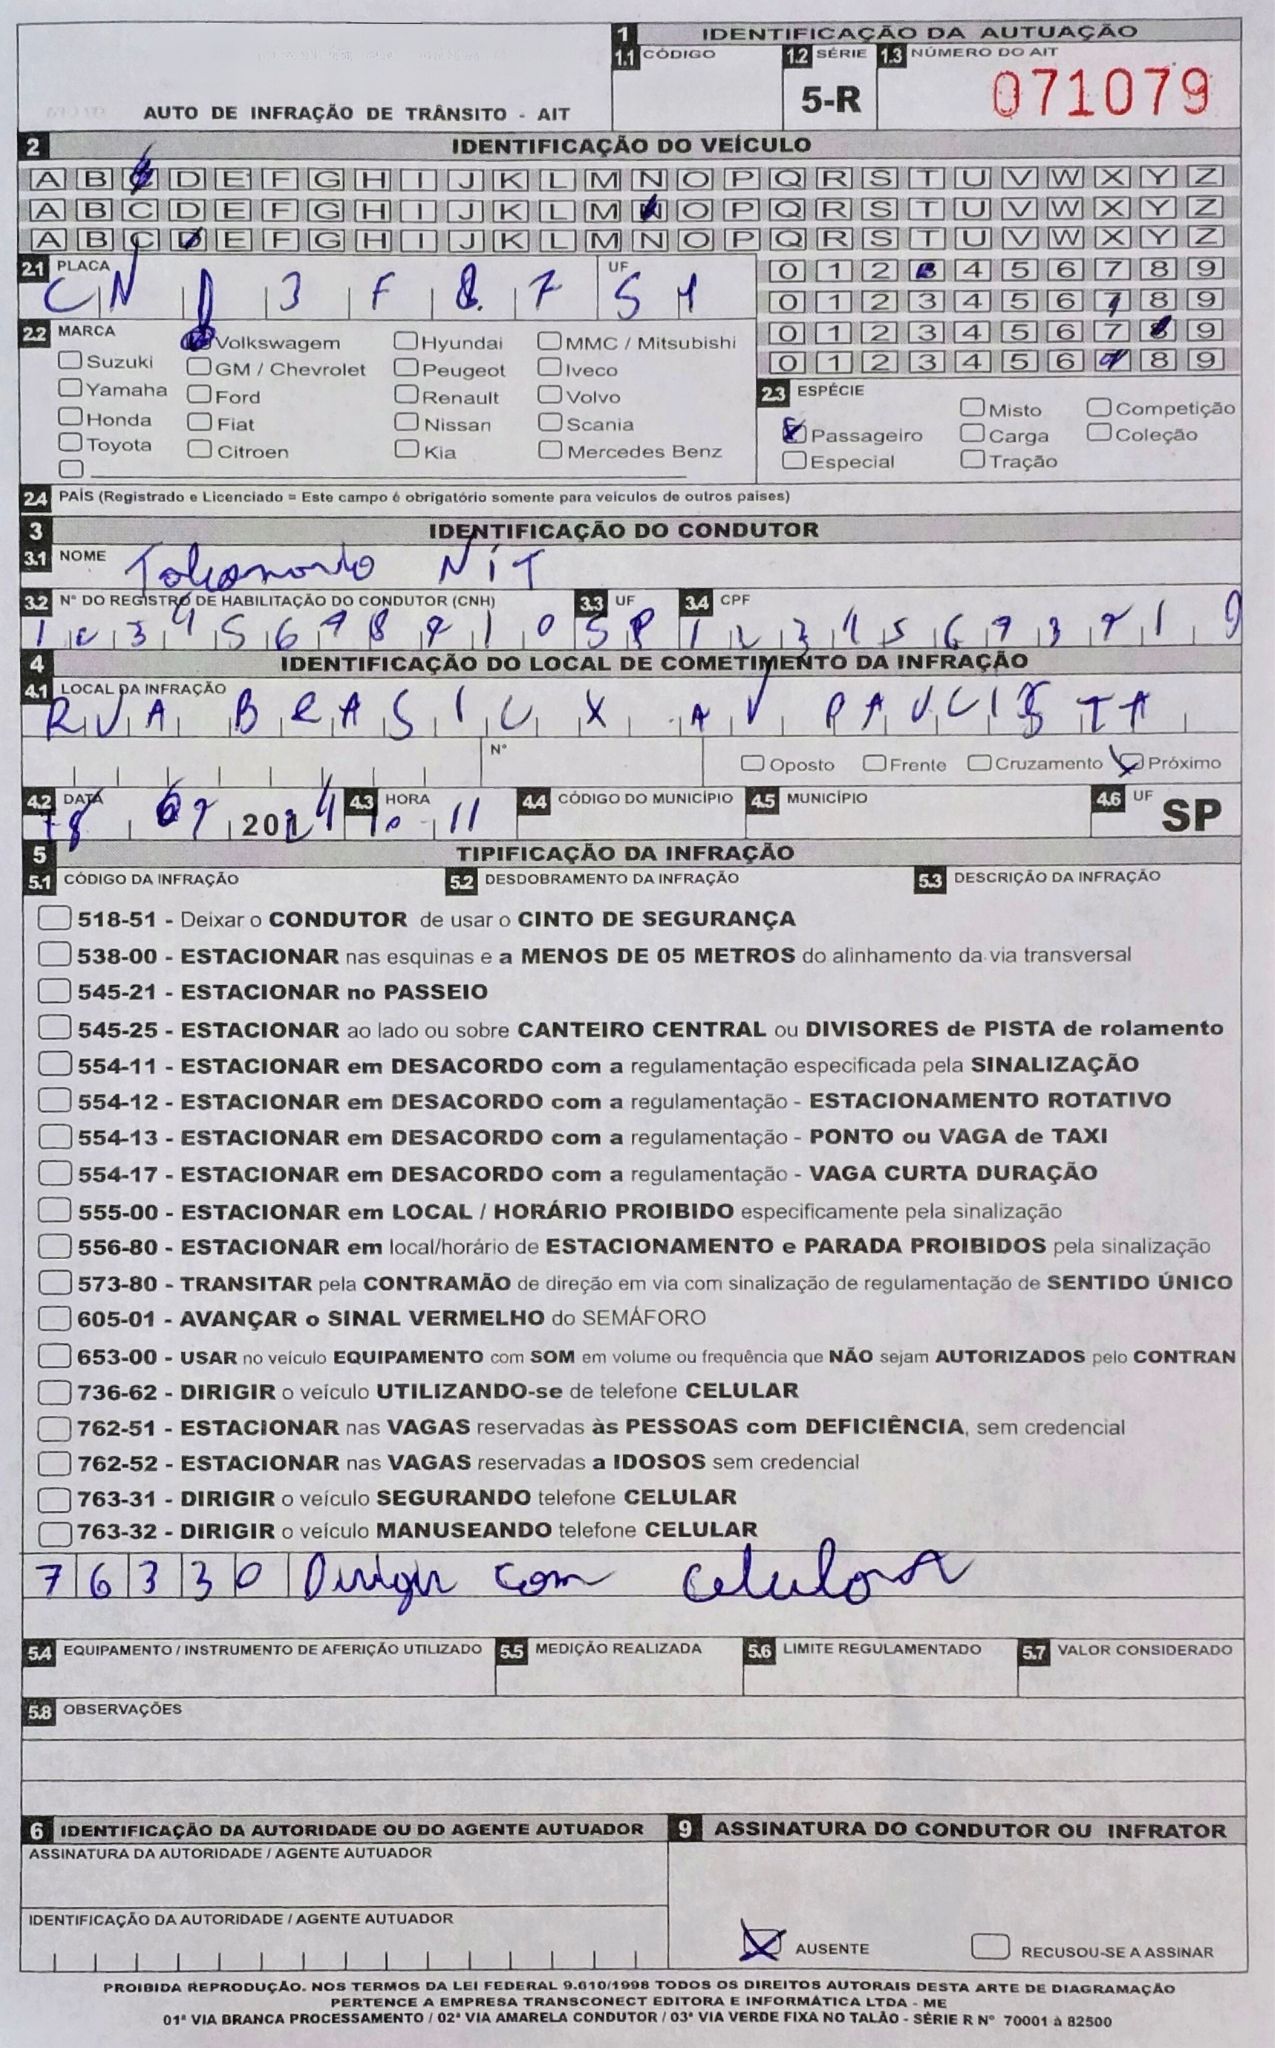 1 IDENTIFICAÇÃO DA AUTUAÇÃO
1.1 CÓDIGO 1.2 SÉRIE 1.3 NÚMERO DO AIT
5-R 071079
AUTO DE INFRAÇÃO DE TRÂNSITO - AIT
2 IDENTIFICAÇÃO DO VEÍCULO
A B C D E F G H I J K L M N O P Q R S T U V W X Y Z
A B C D E F G H I J K L M N O P Q R S T U V W X Y Z
A B C D E F G H I J K L M N O P Q R S T U V W X Y Z
2.1 PLACA UF
C N D 3 F 8 7 S
0 1 2 3 4 5 6 7 8 9
0 1 2 3 4 5 6 7 8 9
0 1 2 3 4 5 6 7 8 9
0 1 2 3 4 5 6 7 8 9
2.2 MARCA
Suzuki
Yamaha
Honda
Toyota
Volkswagem
GM / Chevrolet
Ford
Fiat
Citroen
Hyundai
Peugeot
Renault
Nissan
Kia
MMC / Mitsubishi
Iveco
Volvo
Scania
Mercedes Benz
2.3 ESPÉCIE
Passageiro
Especial
Misto
Carga
Tração
Competição
Coleção
2.4 PAÍS (Registrado e Licenciado = Este campo é obrigatório somente para veículos de outros países)
3 IDENTIFICAÇÃO DO CONDUTOR
3.1 NOME
NIT
3.2 N° DO REGISTRO DE HABILITAÇÃO DO CONDUTOR (CNH) 3.3 UF 3.4 CPF
SP
4 IDENTIFICAÇÃO DO LOCAL DE COMETIMENTO DA INFRAÇÃO
4.1 LOCAL DA INFRAÇÃO
RUA BRASIL X AV PAULISTA
N°
Oposto Frente Cruzamento Próximo
4.2 DATA 4.3 HORA 4.4 CÓDIGO DO MUNICÍPIO 4.5 MUNICÍPIO 4.6 UF
10 11 SP
5 TIPIFICAÇÃO DA INFRAÇÃO
5.1 CÓDIGO DA INFRAÇÃO 5.2 DESDOBRAMENTO DA INFRAÇÃO 5.3 DESCRIÇÃO DA INFRAÇÃO
518-51 - Deixar o CONDUTOR de usar o CINTO DE SEGURANÇA
538-00 - ESTACIONAR nas esquinas e a MENOS DE 05 METROS do alinhamento da via transversal
545-21 - ESTACIONAR no PASSEIO
545-25 - ESTACIONAR ao lado ou sobre CANTEIRO CENTRAL ou DIVISORES de PISTA de rolamento
554-11 - ESTACIONAR em DESACORDO com a regulamentação especificada pela SINALIZAÇÃO
554-12 - ESTACIONAR em DESACORDO com a regulamentação - ESTACIONAMENTO ROTATIVO
554-13 - ESTACIONAR em DESACORDO com a regulamentação - PONTO ou VAGA de TAXI
554-17 - ESTACIONAR em DESACORDO com a regulamentação - VAGA CURTA DURAÇÃO
555-00 - ESTACIONAR em LOCAL / HORÁRIO PROIBIDO especificamente pela sinalização
556-80 - ESTACIONAR em local/horário de ESTACIONAMENTO e PARADA PROIBIDOS pela sinalização
573-80 - TRANSITAR pela CONTRAMÃO de direção em via com sinalização de regulamentação de SENTIDO ÚNICO
605-01 - AVANÇAR o SINAL VERMELHO do SEMÁFORO
653-00 - USAR no veículo EQUIPAMENTO com SOM em volume ou frequência que NÃO sejam AUTORIZADOS pelo CONTRAN
736-62 - DIRIGIR o veículo UTILIZANDO-se de telefone CELULAR
762-51 - ESTACIONAR nas VAGAS reservadas às PESSOAS com DEFICIÊNCIA, sem credencial
762-52 - ESTACIONAR nas VAGAS reservadas a IDOSOS sem credencial
763-31 - DIRIGIR o veículo SEGURANDO telefone CELULAR
763-32 - DIRIGIR o veículo MANUSEANDO telefone CELULAR
7 6 3 3 0 Dirigir com
5.4 EQUIPAMENTO / INSTRUMENTO DE AFERIÇÃO UTILIZADO 5.5 MEDIÇÃO REALIZADA 5.6 LIMITE REGULAMENTADO 5.7 VALOR CONSIDERADO
5.8 OBSERVAÇÕES
6 IDENTIFICAÇÃO DA AUTORIDADE OU DO AGENTE AUTUADOR
ASSINATURA DA AUTORIDADE / AGENTE AUTUADOR
IDENTIFICAÇÃO DA AUTORIDADE / AGENTE AUTUADOR
9 ASSINATURA DO CONDUTOR OU INFRATOR
AUSENTE RECUSOU-SE A ASSINAR
PROIBIDA REPRODUÇÃO. NOS TERMOS DA LEI FEDERAL 9.610/1998 TODOS OS DIREITOS AUTORAIS DESTA ARTE DE DIAGRAMAÇÃO
PERTENCE A EMPRESA TRANSCONECT EDITORA E INFORMÁTICA LTDA - ME
01ª VIA BRANCA PROCESSAMENTO / 02ª VIA AMARELA CONDUTOR / 03ª VIA VERDE FIXA NO TALÃO - SÉRIE R N° 70001 à 82500